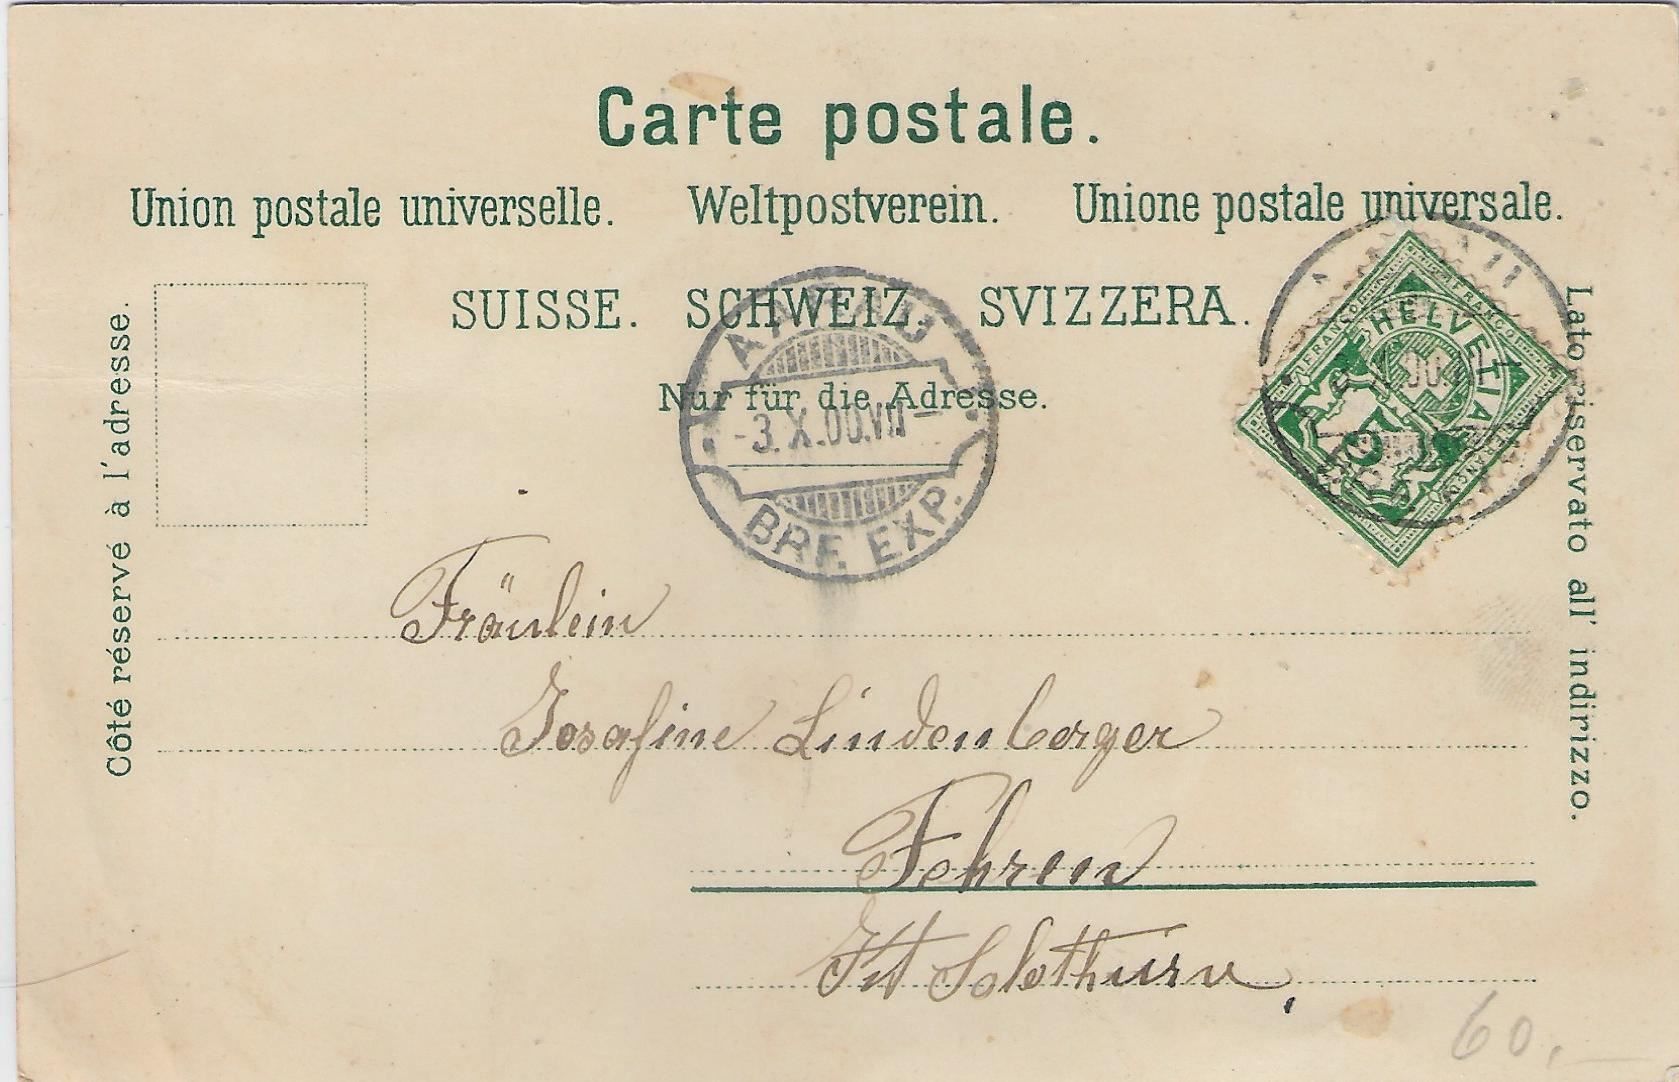 Carte postale.
Union postale universelle. Weltpostverein. Unione postale universale.
SUISSE. SCHWEIZ SVIZZERA.
Nur für die Adresse.
Côté réservé à l'adresse.
Lato riservato all' indirizzo.
AARAU
-3.X.00.VII-
BRF. EXP.
FRANCO FRANCO
HELVETIA
5
FRANCO
Fräulein
Josefine Lindenberger
Fehren
Kt Solothurn
60.-